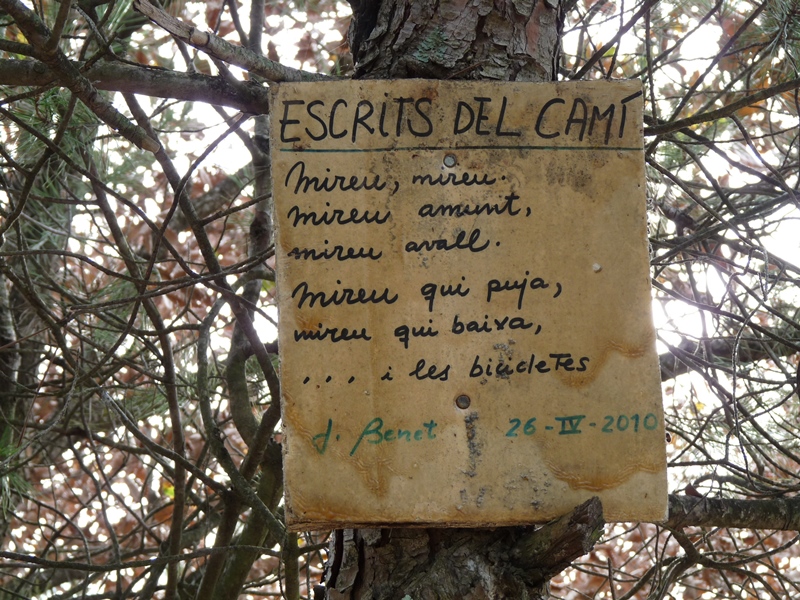 ESCRITS DEL CAMÍ
Mireu, mireu.
mireu amunt,
mireu avall.
Mireu qui puja,
mireu qui baixa,
. . . i les bicicletes
J. Benet 26-IV-2010